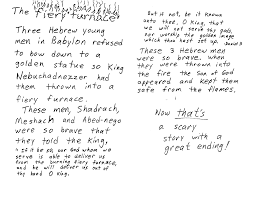 The fiery furnace
Three Hebrew young
men in Babylon refused
to bow down to a
golden statue so King
Nebuchadnezzer had
them thrown into a
fiery furnace.
These men, Shadrach,
Meshach and Abed-nego
were so brave that
they told the King,
"If it be so, our God whom we
serve is able to deliver us
from the burning fiery furnace,
and he will deliver us out of
thy hand O King.
But if not, be it known
unto thee, O King, that
we will not serve thy gods,
nor worship the golden image
which thou hast set up.
These 3 Hebrew men
were so brave, when
they were thrown into
the fire the Son of God
appeared and kept them
safe from the flames.
Now that's
a scary
story with a
great ending!